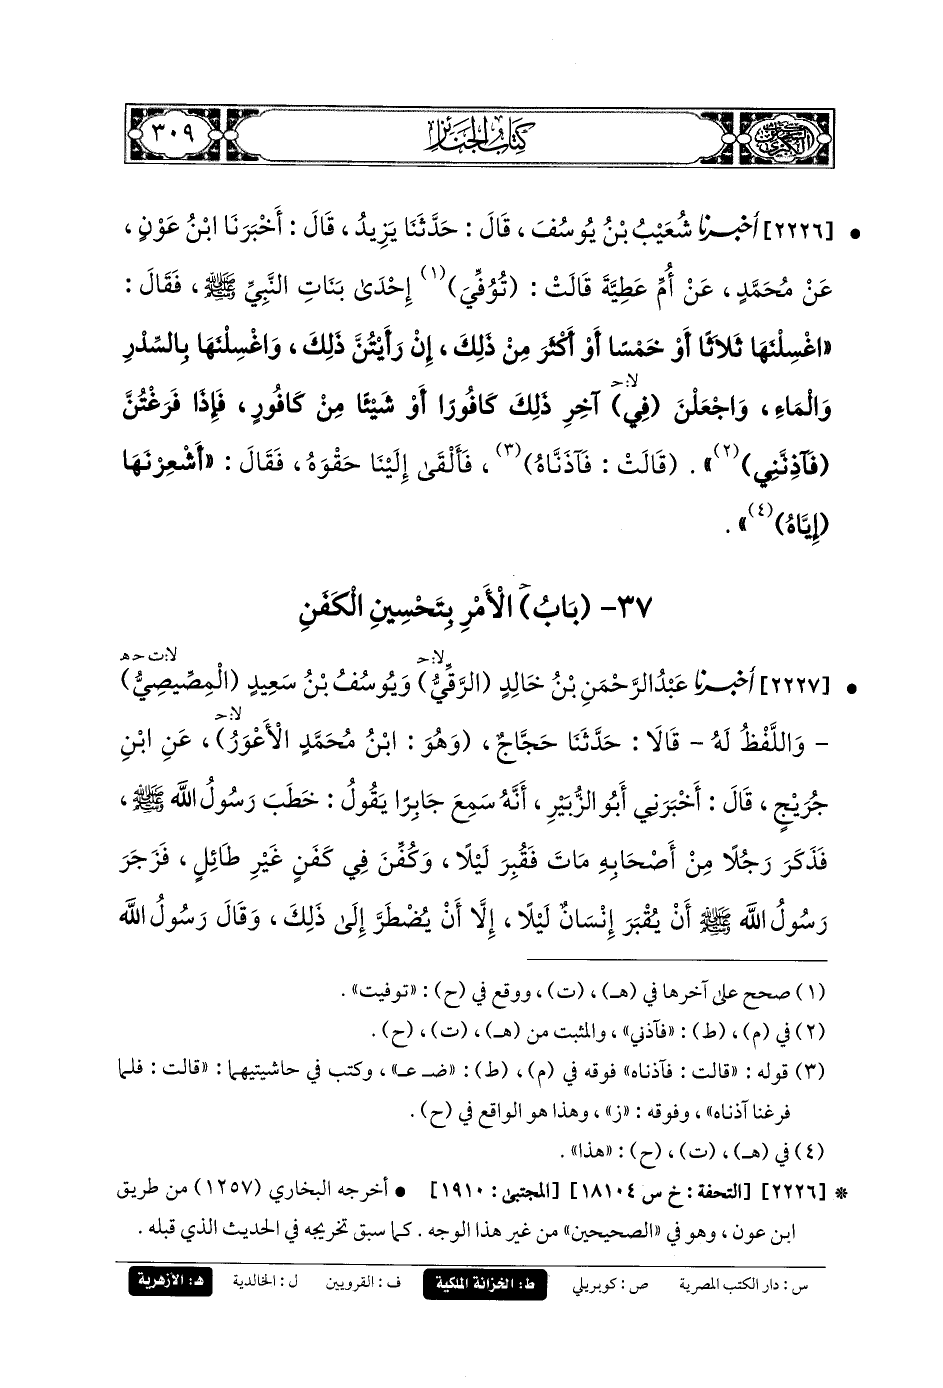 ٣٠٩
كتاب الجنائز
السنن الكبرى
• [٢٢٢٦] أَخْبَرَنَا شُعَيْبُ بْنُ يُوسُفَ، قَالَ: حَدَّثَنَا يَزِيدُ، قَالَ: أَخْبَرَنَا ابْنُ عَوْنٍ،
عَنْ مُحَمَّدٍ، عَنْ أُمِّ عَطِيَّةَ قَالَتْ: (تُوُفِّيَ)(١) إِحْدَىٰ بَنَاتِ النَّبِيِّ ﷺ، فَقَالَ:
«اغْسِلْنَهَا ثَلَاثًا أَوْ خَمْسًا أَوْ أَكْثَرَ مِنْ ذَلِكَ، إِنْ رَأَيْتُنَّ ذَلِكَ، وَاغْسِلْنَهَا بِالسِّدْرِ
وَالْمَاءِ، وَاجْعَلْنَ (فِي) لا:حـ آخِرِ ذَلِكَ كَافُورًا أَوْ شَيْئًا مِنْ كَافُورٍ، فَإِذَا فَرَغْتُنَّ
(فَآذِنَّنِي)(٢)». (قَالَتْ: فَآذَنَّاهُ)(٣)، فَأَلْقَىٰ إِلَيْنَا حَقْوَهُ، فَقَالَ: «أَشْعِرْنَهَا
(إِيَّاهُ)(٤)».
٣٧- (بَابُ) حـ الْأَمْرِ بِتَحْسِينِ الْكَفَنِ
• [٢٢٢٧] أَخْبَرَنَا عَبْدُالرَّحْمَنِ بْنُ خَالِدٍ (الرَّقِّيُّ) لا:حـ وَيُوسُفُ بْنُ سَعِيدٍ (الْمِصِّيصِيُّ) لا:ت حـ هـ
- وَاللَّفْظُ لَهُ - قَالَا: حَدَّثَنَا حَجَّاجٌ، (وَهُوَ: ابْنُ مُحَمَّدٍ الْأَعْوَرُ) لا:حـ، عَنِ ابْنِ
جُرَيْجٍ، قَالَ: أَخْبَرَنِي أَبُو الزُّبَيْرِ، أَنَّهُ سَمِعَ جَابِرًا يَقُولُ: خَطَبَ رَسُولُ اللَّه ﷺ،
فَذَكَرَ رَجُلًا مِنْ أَصْحَابِهِ مَاتَ فَقُبِرَ لَيْلًا، وَكُفِّنَ فِي كَفَنٍ غَيْرِ طَائِلٍ، فَزَجَرَ
رَسُولُ اللَّه ﷺ أَنْ يُقْبَرَ إِنْسَانٌ لَيْلًا، إِلَّا أَنْ يُضْطَرَّ إِلَىٰ ذَلِكَ، وَقَالَ رَسُولُ اللَّه
(١) صحح على آخرها في (هـ)، (ت)، ووقع في (ح): «توفيت».
(٢) في (م)، (ط): «فآذني»، والمثبت من (هـ)، (ت)، (ح).
(٣) قوله: «قالت: فآذناه» فوقه في (م)، (ط): «ضـ عـ»، وكتب في حاشيتيهما: «قالت: فلما
فرغنا آذناه»، وفوقه: «ز»، وهذا هو الواقع في (ح).
(٤) في (هـ)، (ت)، (ح): «هذا».
* [٢٢٢٦] [التحفة: خ س ١٨١٠٤] [المجتبىٰ: ١٩١٠] • أخرجه البخاري (١٢٥٧) من طريق
ابن عون، وهو في «الصحيحين» من غير هذا الوجه. كما سبق تخريجه في الحديث الذي قبله.
س: دار الكتب المصرية ص: كوبريلي ط: الخزانة الملكية ف: القرويين ل: الخالدية هـ: الأزهرية